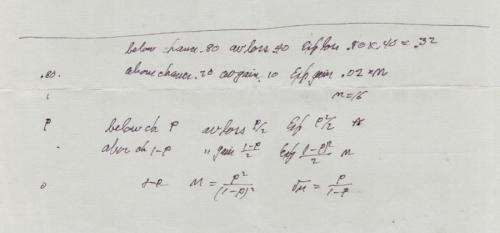 below chance .80 av loss .40 Exp loss .80 x .40 = .32
.80. above chance .20 av gain .10 Exp gain .02 x M
1 M = 16
P below ch P av loss P/2 Exp P²/2
above ch 1-P " gain 1-P/2 Exp (1-P)²/2 M
0 M = P²/(1-P)² √M = P/1-P